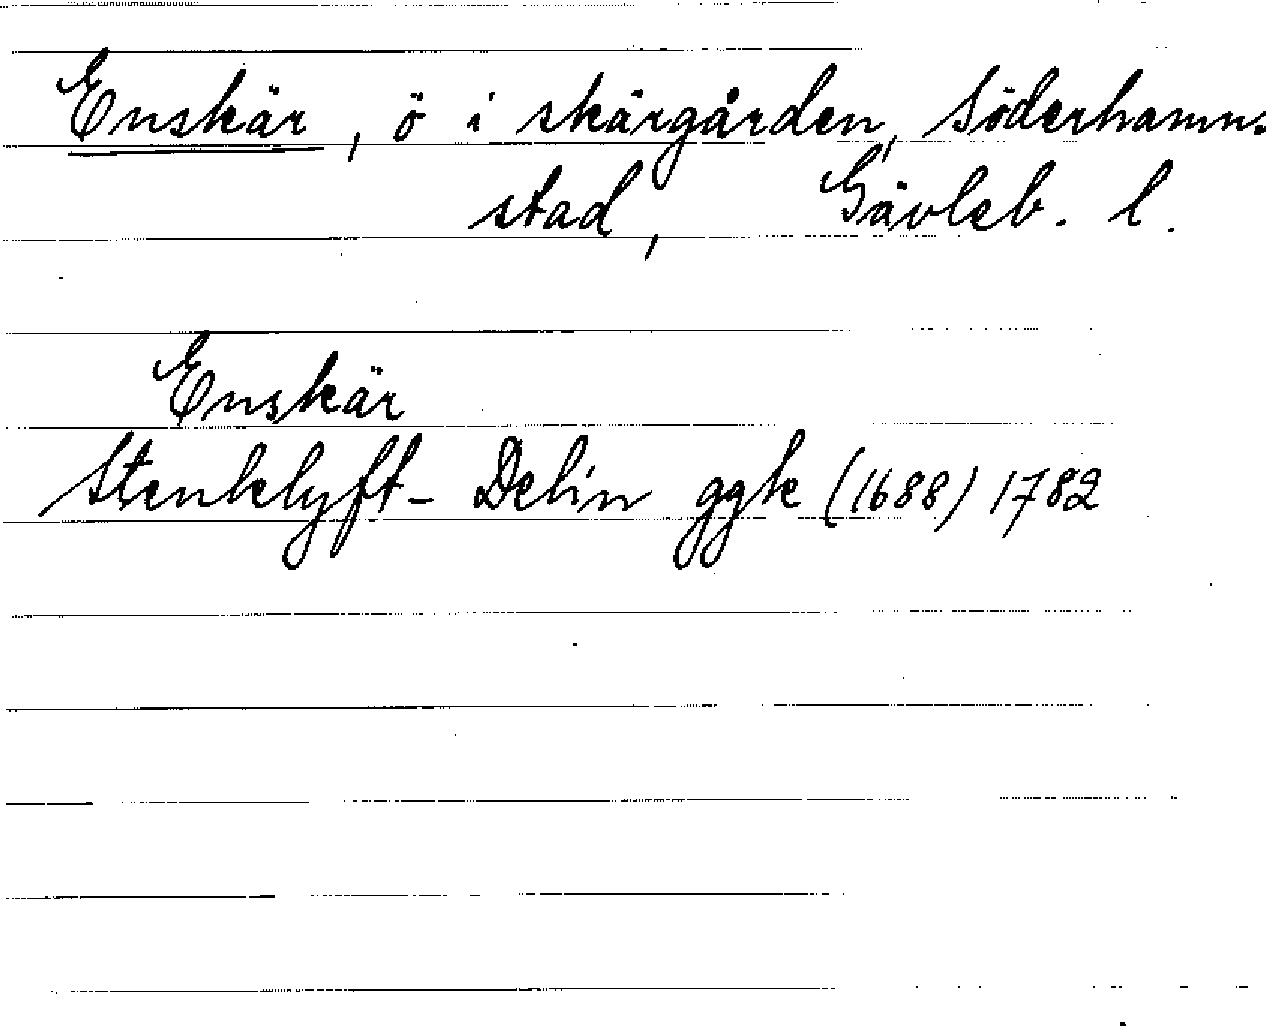 Enskär, ö i skärgården, Söderhamns
stad, Gävleb. l.
Enskär
Stenklyft- Delin ggk (1688) 1782